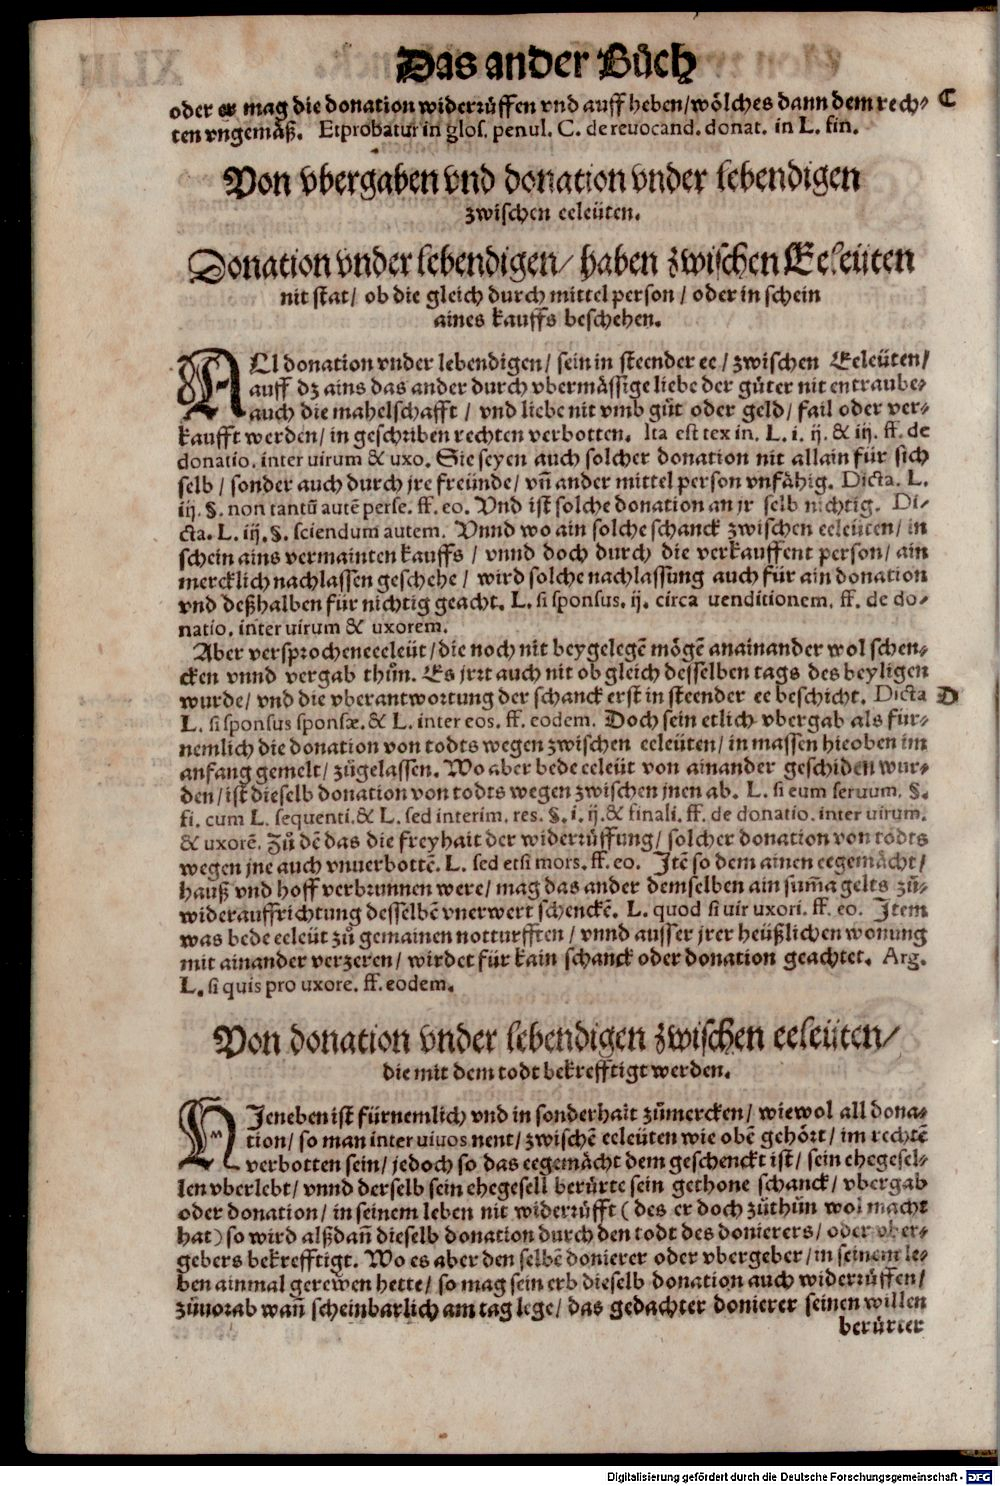 Das ander Bůch
oder er mag die donation widerrůffen vnd auff heben/ wölches dann dem rech⸗ C
ten vngemäß. Et probatur in glos. penul. C. de reuocand. donat. in L. fin.
Von vbergaben vnd donation vnder lebendigen
zwischen eeleüten.
Donation vnder lebendigen/ haben zwischen Eeleüten
nit stat/ ob die gleich durch mittel person/ oder in schein
aines kauffs beschehen.
ALl donation vnder lebendigen/ sein in steender ee/ zwischen Eeleüten/
auff dz ains das ander durch vbermässige liebe der gůter nit entraube⸗
auch die mahelschafft/ vnd liebe nit vmb gůt oder geld/ fail oder ver⸗
kaufft werden/ in geschriben rechten verbotten. Ita est tex in. L. i. ij. & iij. ff. de
donatio. inter uirum & uxo. Sie seyen auch solcher donation nit allain für sich
selb/ sonder auch durch jre freünde/ vñ ander mittel person vnfähig. Dicta. L.
iij. §. non tantū autē perse. ff. eo. Vnd ist solche donation an jr selb nichtig. Di⸗
cta. L. iij. §. sciendum autem. Vnnd wo ain solche schanck zwischen eeleüten/ in
schein ains vermainten kauffs/ vnnd doch durch die verkauffent person/ ain
mercklich nachlassen geschehe/ wird solche nachlassung auch für ain donation
vnd deßhalben für nichtig geacht. L. si sponsus. ij. circa uenditionem. ff. de do⸗
natio. inter uirum & uxorem.
Aber versprochene eeleüt/ die noch nit beygelegē mögē an ainander wol schen⸗
cken vnnd vergab thůn. Es jrrt auch nit ob gleich desselben tags des beyligen
wurde/ vnd die vberantwortung der schanck erst in steender ee beschicht. Dicta D
L. si sponsus sponsæ. & L. inter eos. ff. eodem. Doch sein etlich vbergab als für⸗
nemlich die donation von todts wegen zwischen eeleüten/ in massen hieoben im
anfang gemelt/ zůgelassen. Wo aber bede eeleüt von ainander geschiden wur⸗
den/ ist dieselb donation von todts wegen zwischen jnen ab. L. si eum seruum. §.
fi. cum L. sequenti. & L. sed interim. res. §. i. ij. & finali. ff. de donatio. inter uirum.
& uxorē. Zů dē das die freyhait der widerrůffung/ solcher donation von todts
wegen jne auch vnuerbottē. L. sed etsi mors. ff. eo. Itē so dem ainen eegemächt/
hauß vnd hoff verbrunnen were/ mag das ander demselben ain sum̃a gelts zů⸗
widerauffrichtung desselbē vnerwert schenckē. L. quod si uir uxori. ff. eo. Item
was bede eeleüt zů gemainen notturfften/ vnnd ausser jrer heüßlichen wonung
mit ainander verzeren/ wirdet für kain schanck oder donation geachtet. Arg.
L. si quis pro uxore. ff. eodem.
Von donation vnder lebendigen zwischen eeleüten/
die mit dem todt bekrefftigt werden.
HIeneben ist fürnemlich vnd in sonderhait zůmercken/ wiewol all dona⸗
tion/ so man inter uiuos nent/ zwischē eeleüten wie obē gehört/ im rechtē
verbotten sein/ jedoch so das eegemächt dem geschenckt ist/ sein ehegesel⸗
len vberlebt/ vnnd derselb sein ehegesell berůrte sein gethone schanck/ vbergab
oder donation/ in seinem leben nit widerrůfft (des er doch zůthůn wol macht
hat) so wird alßdañ dieselb donation durch den todt des donierers/ oder vber⸗
gebers bekrefftigt. Wo es aber den selbē donierer oder vbergeber/ in seinem le⸗
ben ainmal gerewen hette/ so mag sein erb dieselb donation auch widerrůffen/
zůuorab wañ scheinbarlich am tag lege/ das gedachter donierer seinen willen
berůrter
Digitalisierung gefördert durch die Deutsche Forschungsgemeinschaft - DFG